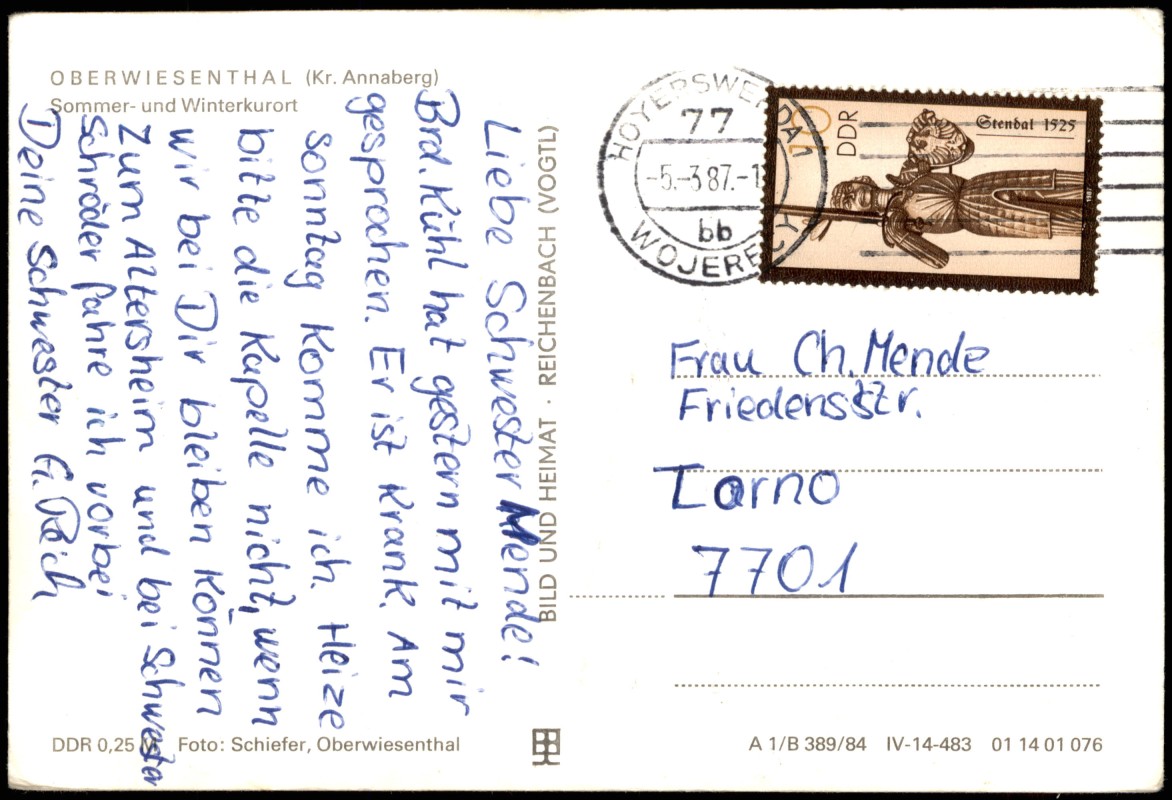 OBERWIESENTHAL (Kr. Annaberg)
Sommer- und Winterkurort
Liebe Schwester Mende!
Brd. Kühl hat gestern mit mir
gesprochen. Er ist krank. Am
Sonntag komme ich. Heize
bitte die Kapelle nicht, wenn
wir bei Dir bleiben können
Zum Altersheim und bei Schwester
Schröder fahre ich vorbei
Deine Schwester G. Reich
DDR 0,25 M Foto: Schiefer, Oberwiesenthal
BILD UND HEIMAT · REICHENBACH (VOGTL)
HOYERSWERDA 1
77
-5.-3 87.-1
bb
WOJERECY
10
DDR
Stendal 1525
Frau Ch. Mende
Friedensstr.
Zarno
7701
A 1/B 389/84 IV-14-483 01 14 01 076